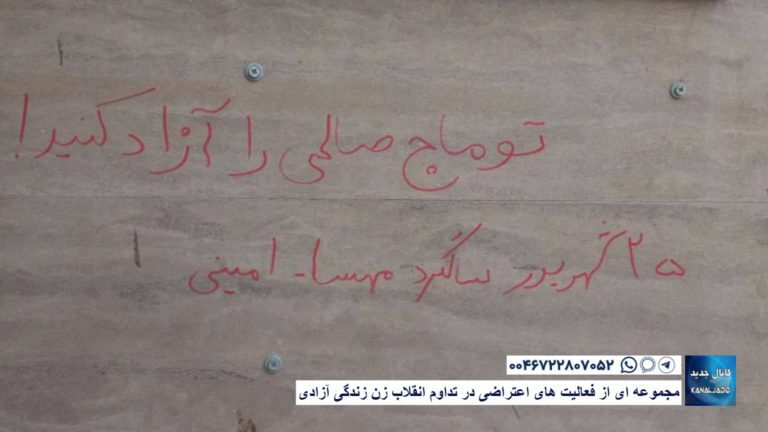 توماج صالحی را آزاد کنید!
۲۵ شهریور سالگرد مهسا-امینی
۰۰۴۶۷۲۲۸۰۷۰۵۲
کانال جدید
KANALJADID
مجموعه ای از فعالیت های اعتراضی در تداوم انقلاب زن زندگی آزادی